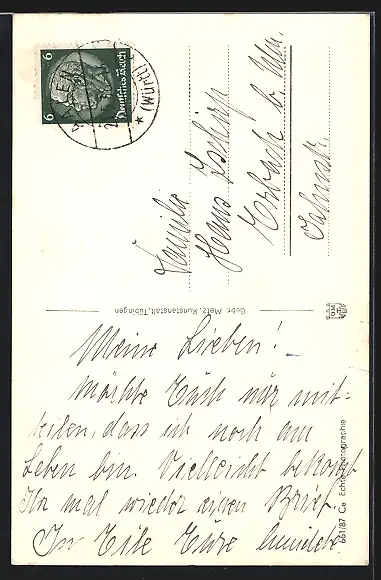 Meine Lieben!
Möchte Euch nur mit-
teilen, dass ich noch am
Leben bin. Vielleicht bekommt
Ihr mal wieder einen Brief.
In Eile Eure
Familie
Hans
Erbach b. Ulm.
Gebr. Metz, Kunstanstalt, Tübingen
661/87 Ca Echte Photographie
6 Deutsches Reich 6
AALEN
* (Württ.)